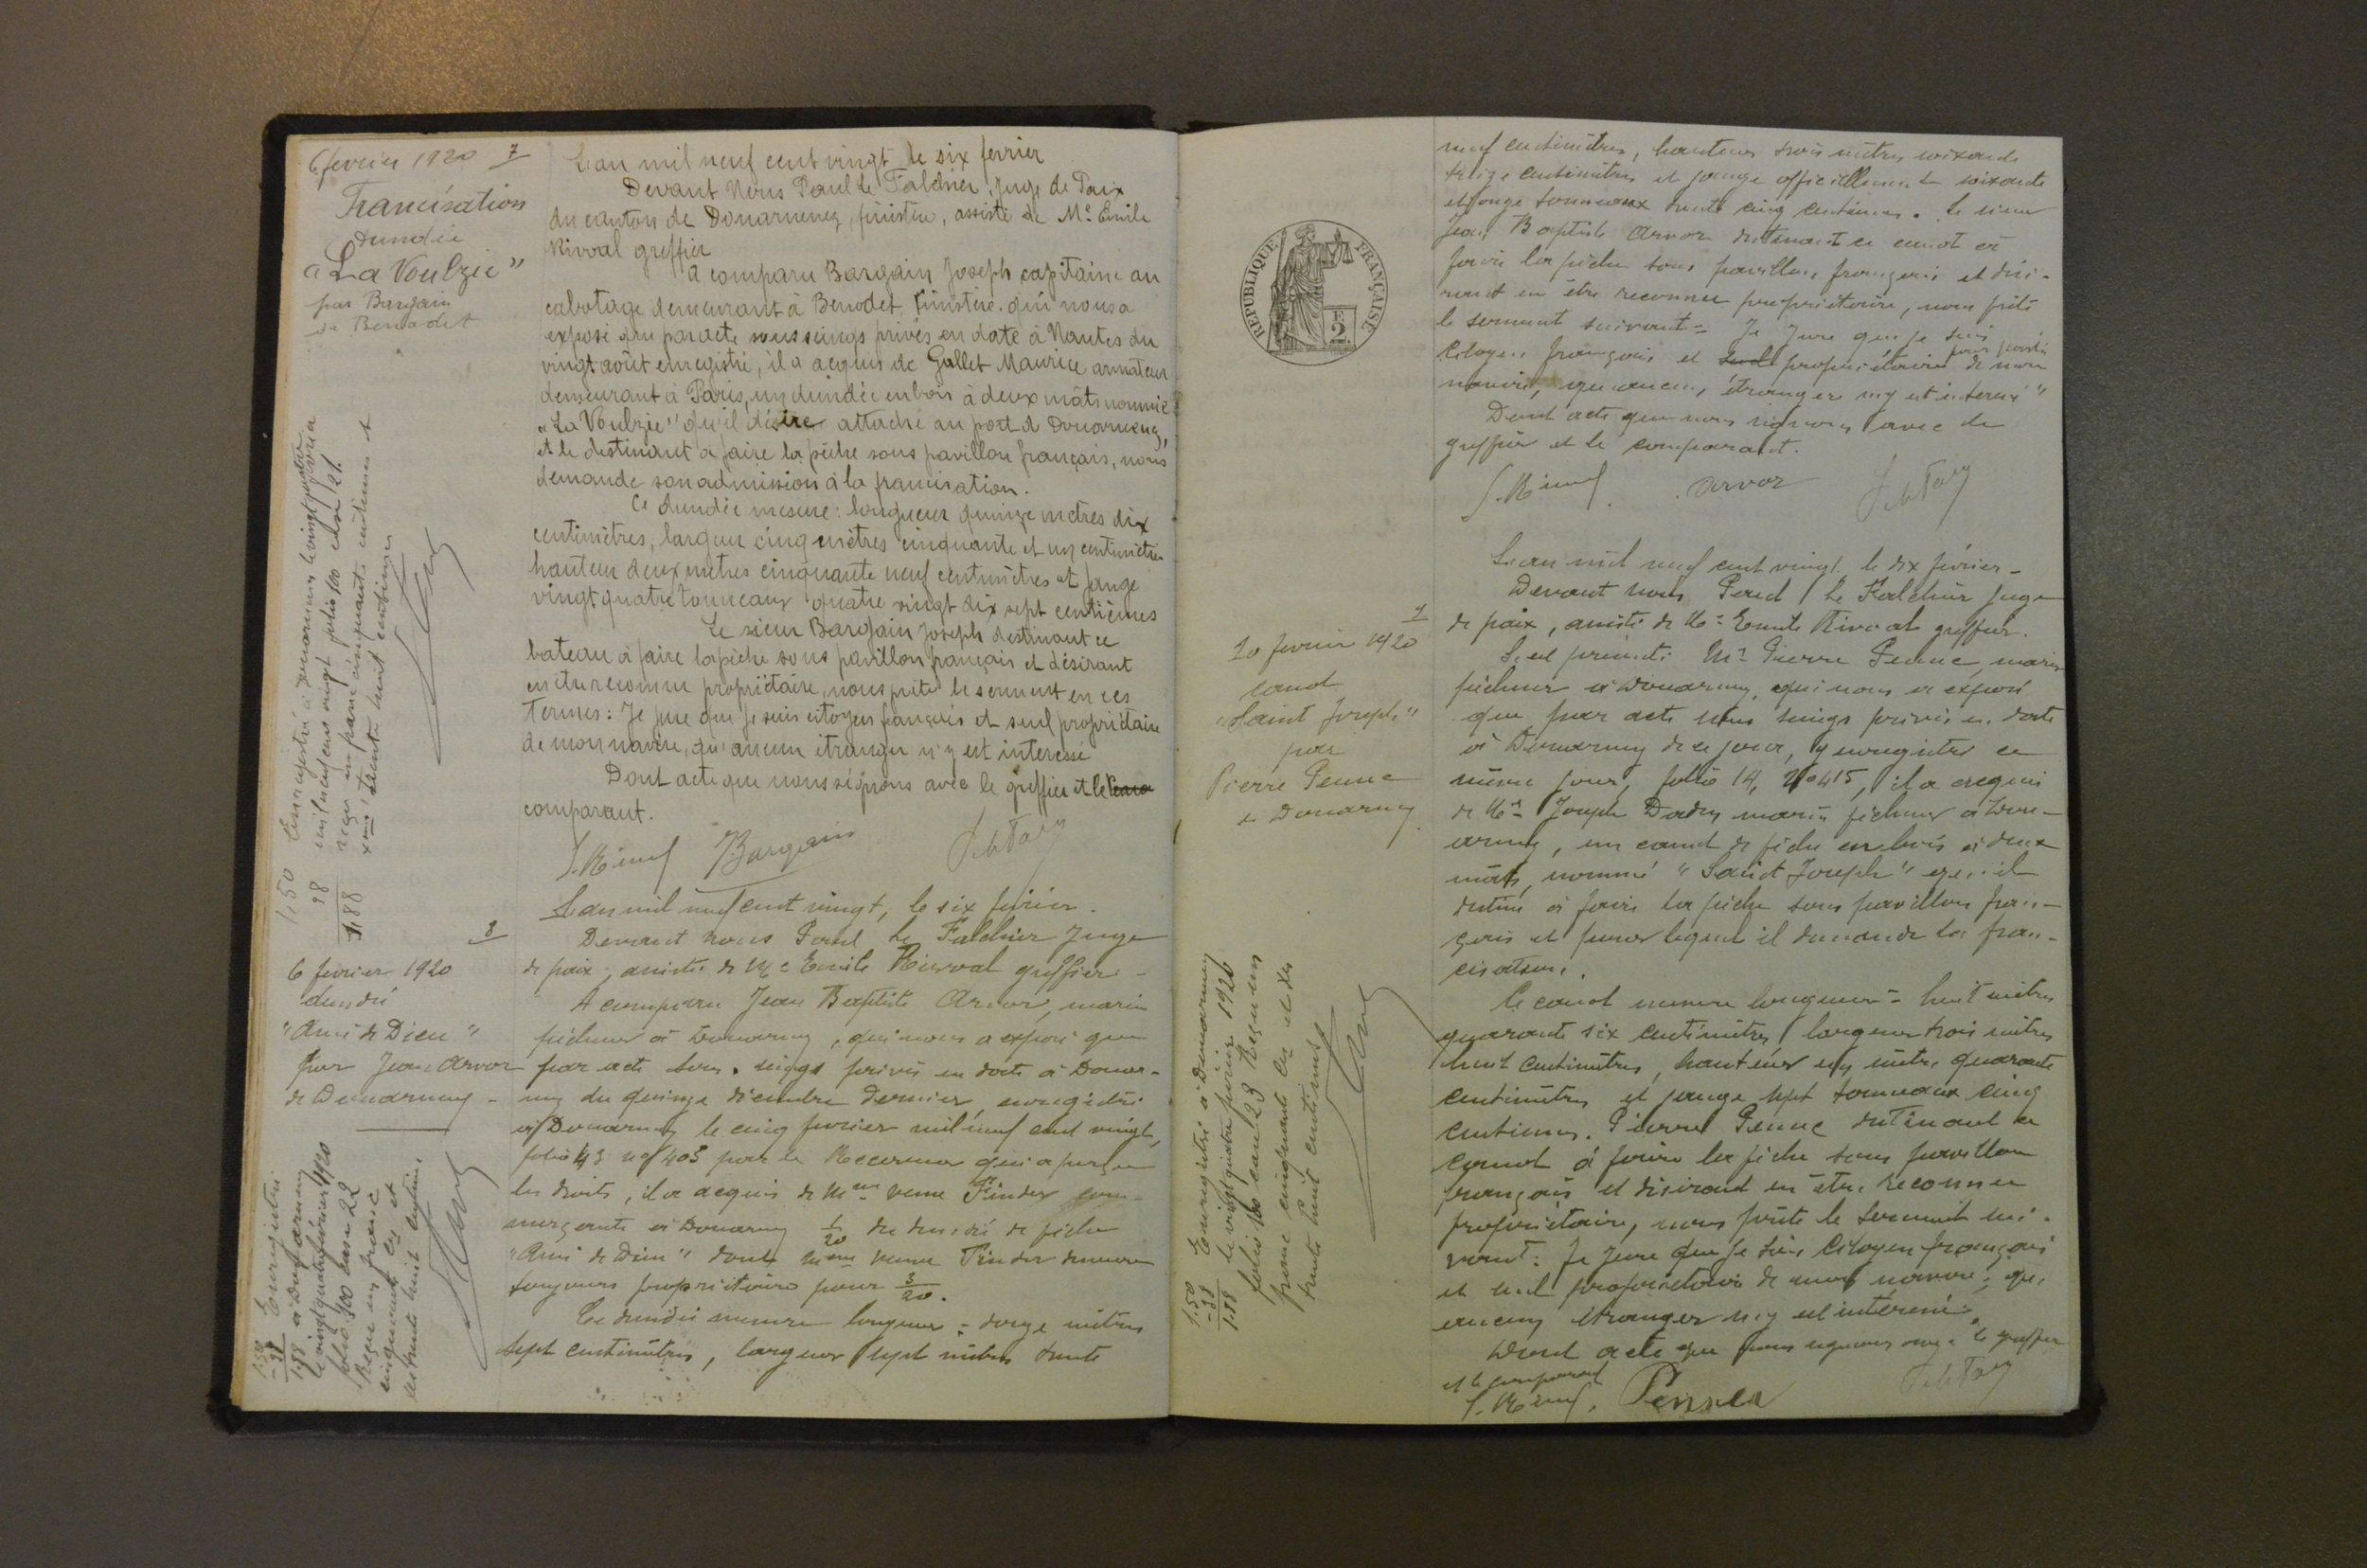 6 fevrier 1920 7
Francisation
dundée
"La Voulzie"
par Bargain
de Benodet
L'an mil neuf cent vingt le six fevrier
Devant Nous Paul Le Falchier, Juge de Paix
du canton de Douarnenez, finistère, assisté de Me Emile
Rivoal greffier
a comparu Bargain Joseph capitaine au
cabotage demeurant à Benodet, finistère. qui nous a
exposé que par acte sous seings privés en date à Nantes du
vingt août enregistré, il a acquis de Gallet Maurice armateur
demeurant à Paris, un dundée en bois à deux mâts nommé
"La Voulzie" qu'il désire attaché au port de Douarnenez,
et le destinant à faire la pêche sous pavillon français, nous
demande son admission à la francisation.
Ce dundée mesure : longueur quinze mètres dix
centimètres, largeur cinq mètres cinquante et un centimètres
hauteur deux mètres cinquante neuf centimètres et jauge
vingt quatre tonneaux quatre vingt dix sept centièmes
Le sieur Bargain Joseph destinant ce
bateau à faire la pêche sous pavillon français et désirant
en être reconnu propriétaire, nous prête le serment en ces
termes : Je jure que je suis citoyen français et seul propriétaire
de mon navire, qu'aucun étranger n'y est interessé
Dont acte que nous signons avec le greffier et le
comparant.
JBargain
Enregistré à Douarnenez le vingt quatre février
mil neuf cent vingt folio 100 case 21.
reçu un franc cinquante centimes et
trente huit centimes
1,50
38
1,88
8
6 fevrier 1920
dundée
"Ami de Dieu"
par Jean Arvor
de Douarnenez
L'an mil neuf cent vingt, le six février.
Devant nous Paul Le Falchier Juge
de paix, assisté de Me Emile Rivoal greffier -
A comparu Jean Baptiste Arvor, marin
pêcheur à Douarnenez, qui nous a exposé que
par acte sous seings privés en date à Douar-
nez du quinze décembre dernier, enregistré
à Douarnenez le cinq fevrier mil neuf cent vingt,
folio 43 no 403 par le Receveur qui a perçu
les droits, il a acquis de Mme veuve com-
merçante à Douarnenez 1/20 du dundée de pêche
"Ami de Dieu" dont Mme veuve demeure
toujours propriétaire pour 3/20.
Ce dundée mesure longueur = mètres
sept centimètres, largeur sept mètres trente
1.50
- 38
1.88
Enregistré
à Douarnenez
le vingt quatre février 1920
folio 100 case 22
Reçu un franc
cinquante ces et
trente huit centimes
REPUBLIQUE FRANÇAISE
F.
2
neuf centimètres, hauteur trois mètres soixante
treize centimètres et jauge officiellement soixante
et onze tonneaux trente cinq centièmes. Le sieur
Jean Baptiste Arvor destinant ce canot à
faire la pêche sous pavillon français et dési-
rant en être reconnu propriétaire, nous prête
le serment suivant = Je jure que je suis
citoyen français et seul propriétaire pour partie de mon
navire, qu'aucun étranger n'y est interessé"
Dont acte que nous signons avec le
greffier et le comparant.
Arvor
7
10 fevrier 1920
canot
"Saint Joseph"
par
Pierre Penne
L'an mil neuf cent vingt, le dix février -
Devant nous Paul Le Falchier Juge
de paix, assisté de Me Emile Rivoal greffier.
S'est présenté Mr Pierre Penne, marin
pêcheur à Douarnenez, qui nous a exposé
que par acte sous seings privés en date
à Douarnenez de ce jour, y enregistré ce
même jour, folio 14, no 415, il a acquis
de Mr Joseph marin pêcheur à Dou-
arnenez, un canot de pêche en bois à deux
mâts, nommé "Saint Joseph" qu'il
destine à faire la pêche sous pavillon fran-
çais et pour lequel il demande la fran-
cisation.
Ce canot mesure longueur = huit mètres
quarante six centimètres largeur trois mètres
huit centimètres, hauteur un mètre quarante
centimètres et jauge sept tonneaux cinq
centièmes. Pierre Penne destinant ce
canot à faire la pêche sous pavillon
français et désirant en être reconnu
propriétaire, nous prête le serment sui-
vant : Je jure que je suis citoyen français
et seul propriétaire de mon navire, qu'
aucun étranger n'y est intéressé.
Dont acte que nous signons avec le greffier
et le comparant
1.50
- 38
1.88
Enregistré à Douarnenez
le vingt quatre février 1920
folio 100 case 23 Reçu un
franc cinquante ces et des
trente huit centimes